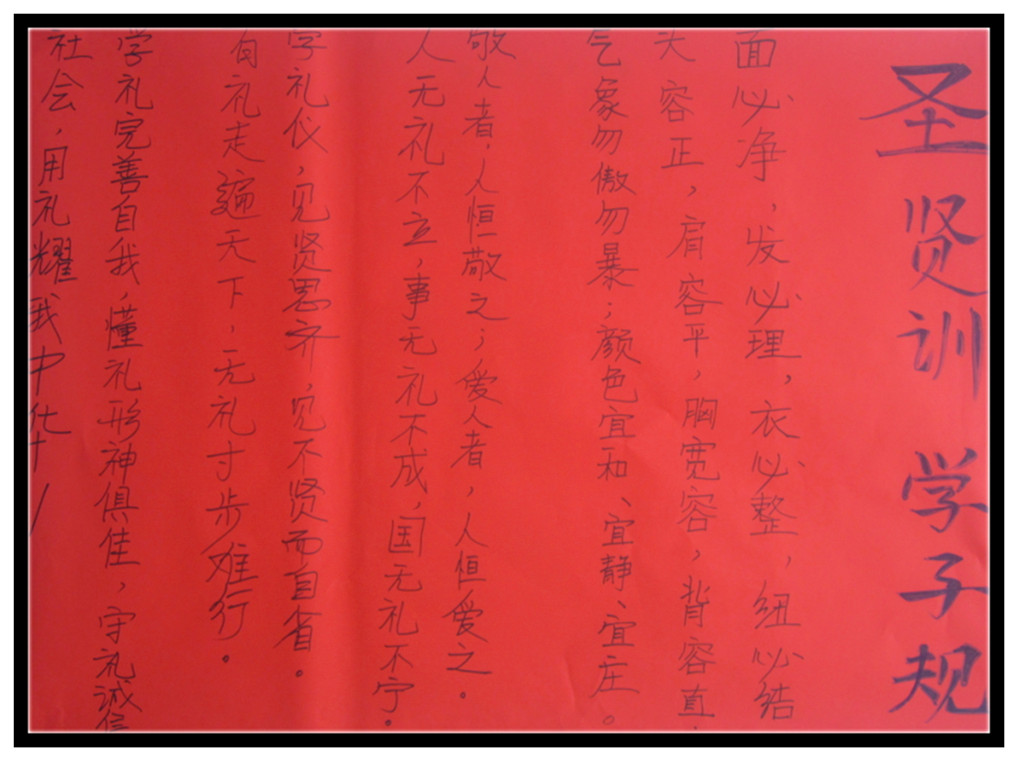 圣贤训 学子规
面必净，发必理，衣必整，纽必结
头容正，肩容平，胸宽容，背容直.
气象勿傲勿暴；颜色宜和、宜静、宜庄。
敬人者，人恒敬之；爱人者，人恒爱之。
人无礼不立，事无礼不成，国无礼不宁。
学礼仪，见贤思齐，见不贤而自省。
有礼走遍天下，无礼寸步难行。
学礼完善自我，懂礼形神俱佳，守礼诚信
社会，用礼耀我中华！